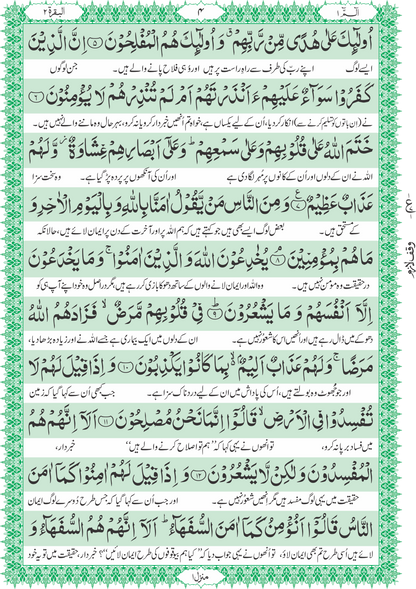 البقرة ۲
۴
الٓمّٓ ۱
اُولٰٓئِكَ عَلٰى هُدًى مِّنْ رَّبِّهِمْ ۙ وَ اُولٰٓئِكَ هُمُ الْمُفْلِحُوْنَ ۵ اِنَّ الَّذِيْنَ
ایسے لوگ اپنے رب کی طرف سے راہِ راست پر ہیں اور وہی فلاح پانے والے ہیں۔ جن لوگوں
كَفَرُوْا سَوَآءٌ عَلَيْهِمْ ءَاَنْذَرْتَهُمْ اَمْ لَمْ تُنْذِرْهُمْ لَا يُؤْمِنُوْنَ ۶
نے (ان باتوں کو تسلیم کرنے سے) انکار کر دیا، اُن کے لیے یکساں ہے، خواہ تم اُنھیں خبردار کرو یا نہ کرو، بہرحال وہ ماننے والے نہیں ہیں۔
خَتَمَ اللّٰهُ عَلٰى قُلُوْبِهِمْ وَ عَلٰى سَمْعِهِمْ ؕ وَ عَلٰٓى اَبْصَارِهِمْ غِشَاوَةٌ ؗ وَّ لَهُمْ
اللہ نے ان کے دلوں اور اُن کے کانوں پر مُہر لگا دی ہے اور اُن کی آنکھوں پر پردہ پڑ گیا ہے۔ وہ سخت سزا
عَذَابٌ عَظِيْمٌ ۷ وَ مِنَ النَّاسِ مَنْ يَّقُوْلُ اٰمَنَّا بِاللّٰهِ وَ بِالْيَوْمِ الْاٰخِرِ وَ
کے مستحق ہیں۔ بعض لوگ ایسے بھی ہیں جو کہتے ہیں کہ ہم اللہ پر اور آخرت کے دن پر ایمان لائے ہیں، حالانکہ
مَا هُمْ بِمُؤْمِنِيْنَ ۸ يُخٰدِعُوْنَ اللّٰهَ وَ الَّذِيْنَ اٰمَنُوْا ۚ وَ مَا يَخْدَعُوْنَ
درحقیقت وہ مومن نہیں ہیں۔ وہ اللہ اور ایمان لانے والوں کے ساتھ دھوکا بازی کر رہے ہیں، مگر دراصل وہ خود اپنے آپ ہی کو
اِلَّاۤ اَنْفُسَهُمْ وَ مَا يَشْعُرُوْنَ ۹ فِيْ قُلُوْبِهِمْ مَّرَضٌ ۙ فَزَادَهُمُ اللّٰهُ
دھوکے میں ڈال رہے ہیں اور اُنھیں اس کا شعور نہیں ہے۔ ان کے دلوں میں ایک بیماری ہے جسے اللہ نے اور زیادہ بڑھا دیا،
مَرَضًا ۚ وَ لَهُمْ عَذَابٌ اَلِيْمٌۢ ۙ بِمَا كَانُوْا يَكْذِبُوْنَ ۱۰ وَ اِذَا قِيْلَ لَهُمْ لَا
اور جو جھوٹ وہ بولتے ہیں، اُس کی پاداش میں ان کے لیے دردناک سزا ہے۔ جب کبھی اُن سے کہا گیا کہ زمین
تُفْسِدُوْا فِي الْاَرْضِ ۙ قَالُوْۤا اِنَّمَا نَحْنُ مُصْلِحُوْنَ ۱۱ اَلَاۤ اِنَّهُمْ هُمُ
میں فساد برپا نہ کرو، تو اُنھوں نے یہی کہا کہ ”ہم تو اصلاح کرنے والے ہیں“ خبردار،
الْمُفْسِدُوْنَ وَ لٰكِنْ لَّا يَشْعُرُوْنَ ۱۲ وَ اِذَا قِيْلَ لَهُمْ اٰمِنُوْا كَمَاۤ اٰمَنَ
حقیقت میں یہی لوگ مفسد ہیں مگر انھیں شعور نہیں ہے۔ اور جب اُن سے کہا گیا کہ جس طرح دُوسرے لوگ ایمان
النَّاسُ قَالُوْۤا اَنُؤْمِنُ كَمَاۤ اٰمَنَ السُّفَهَآءُ ؕ اَلَاۤ اِنَّهُمْ هُمُ السُّفَهَآءُ وَ
لائے ہیں اُسی طرح تم بھی ایمان لاؤ، تو اُنھوں نے یہی جواب دیا کہ ”کیا ہم بیوقوفوں کی طرح ایمان لائیں“؟ خبردار، حقیقت میں تو یہ خود
وقف لازم
منزل ۱